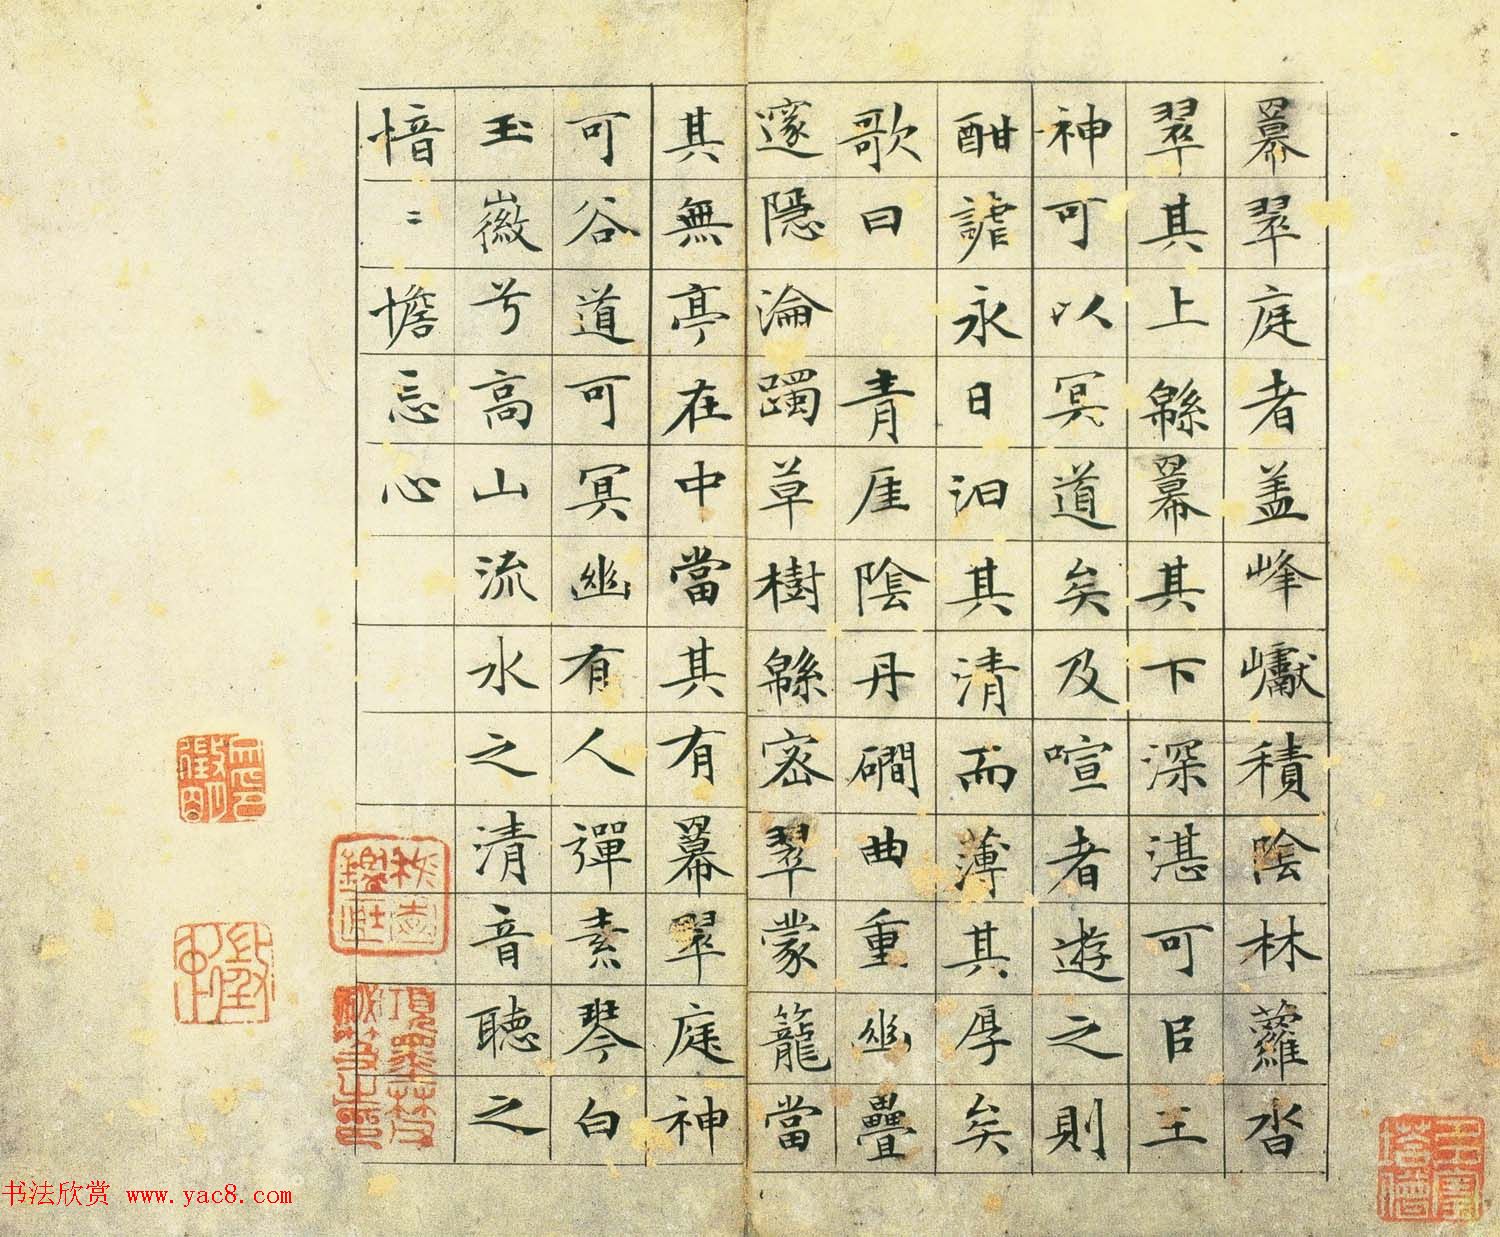 羃翠庭者蓋峰巘積陰林蘿沓
翠其上緜羃其下深湛可㠯王
神可以冥道矣及喧者遊之則
酣謔永日汩其清而薄其厚矣
歌曰　青厓陰丹磵曲重幽疊
邃隱淪躅草樹緜密翠蒙籠當
其無亭在中當其有羃翠庭神
可谷道可冥幽有人彈素琴白
玉徽兮高山流水之清音聽之
愔〻憺忘心
項墨林父秘笈之印
书法欣赏 www.yac8.com